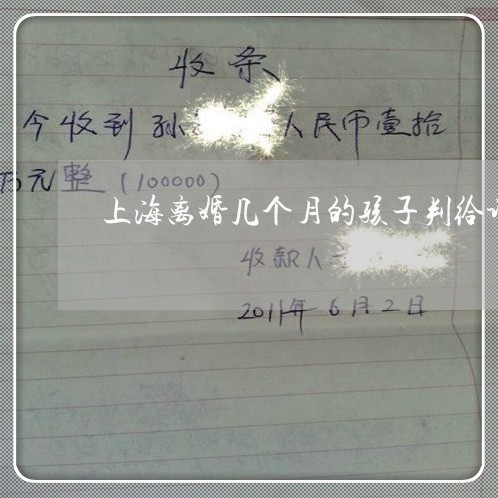 收条
今收到孙 人民币壹拾
万元整(100000)
上海离婚几个月的孩子判给
收款人
2011年6月2日